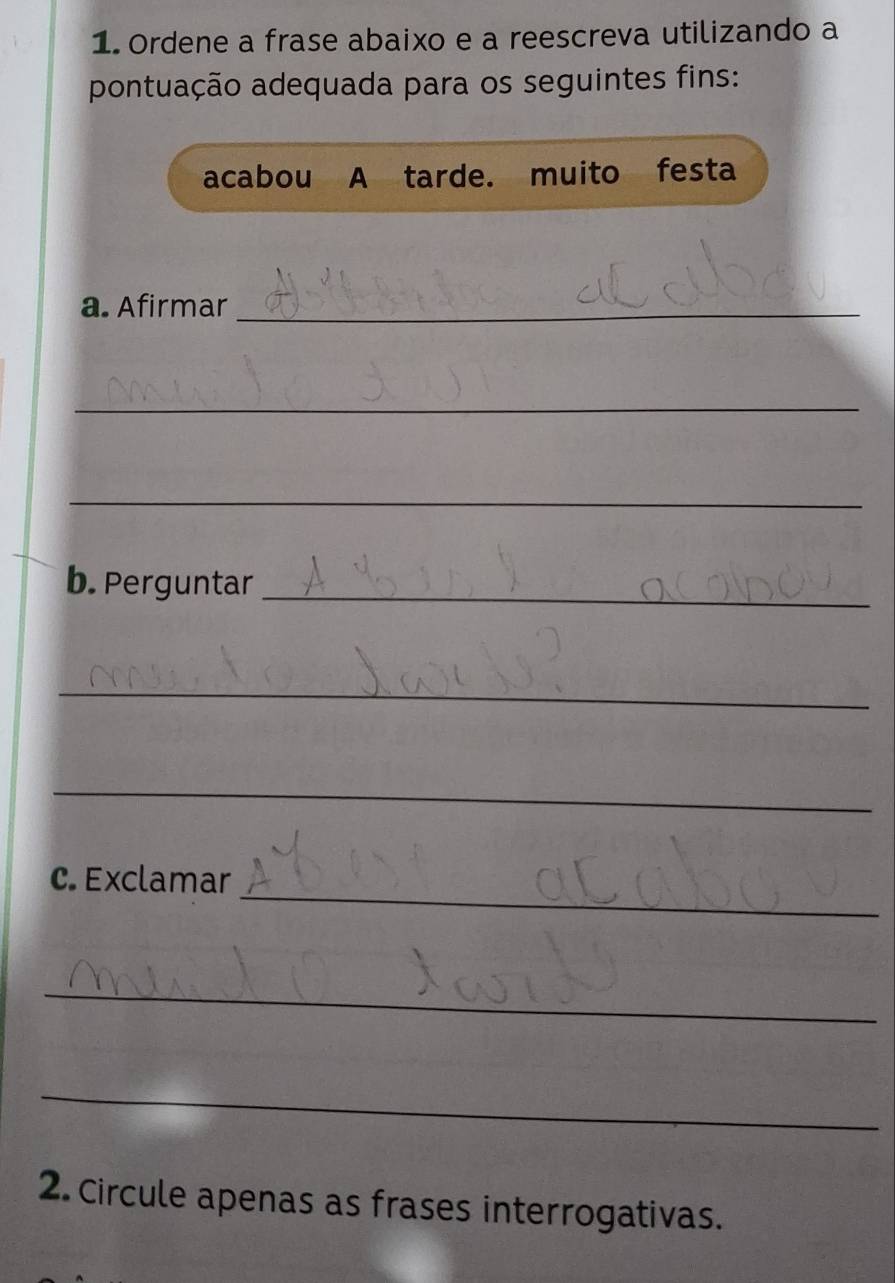 1. Ordene a frase abaixo e a reescreva utilizando a
pontuação adequada para os seguintes fins:
acabou A tarde. muito festa
a. Afirmar A acabou
muito
b. Perguntar A acabou
muito tarde?
c. Exclamar A acabou
muito tarde
2. Circule apenas as frases interrogativas.